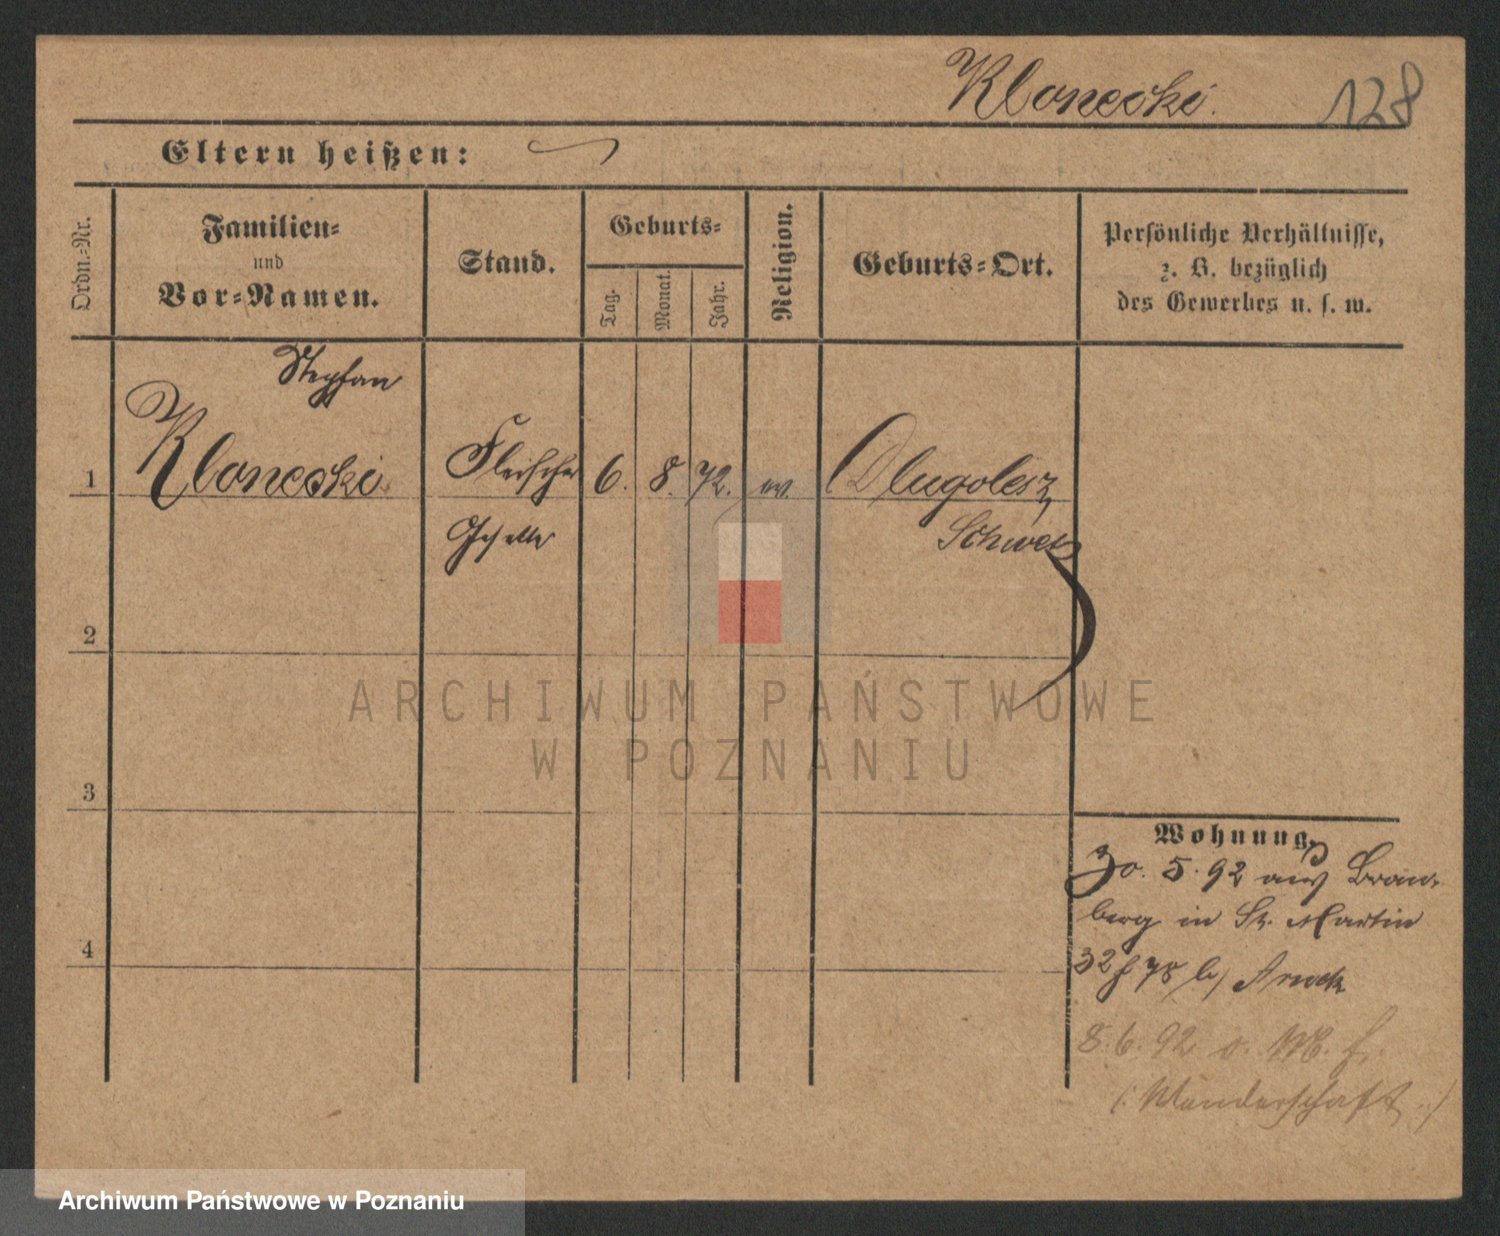 Klonecki. 128
Eltern heißen:
Ordn.-Nr.
Familien-
und
Vor-Namen.
Stand.
Geburts-
Tag.
Monat.
Jahr.
Religion.
Geburts-Ort.
Persönliche Verhältnisse,
z. B. bezüglich
des Gewerbes u. s. w.
Stephan
1 Klonecki Fleischer 6. 8. 72.
Geselle
Schwetz
2
3
4
Wohnung.
30. 5. 92 aus Brom-
berg in St. Martin
32
8. 6. 92
(: Wanderschaft :)
ARCHIWUM PAŃSTWOWE
W POZNANIU
Archiwum Państwowe w Poznaniu